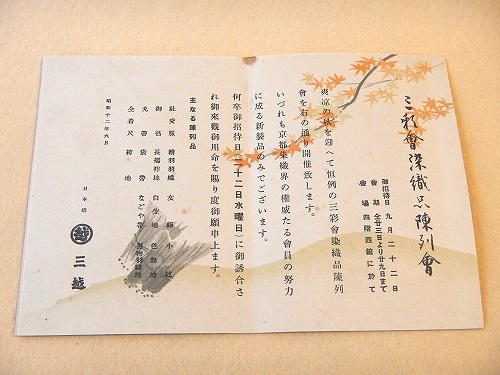 三彩會染織品陳列會
御招待日 九月二十二日
會期 仝廿三日より廿九日まで
會場 四階西館に於て
爽凉の秋を迎へて恒例の三彩會染織品陳列
會を右の通り開催致します。
いづれも京都染織界の權威たる會員の努力
に成る新製品のみでございます。
何卒御招待日(二十二日水曜日)に御誘合さ
れ御來觀御用命を賜り度御願申上ます。
主なる陳列品
社交服 繪羽羽織 友禪小紋
御召 長襦袢地 白生地 色無地
丸帶 袋帶 なごや帶 男物羽織地
全着尺 袴地
昭和十二年九月
日本橋
越 三越